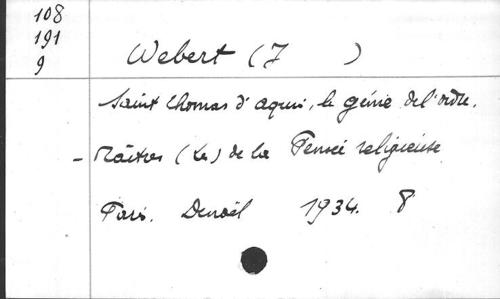 108
191
9
Webert (J )
Saint Thomas d'aquin, le génie de l'ordre.
- Maîtres (Les) de la Pensée religieuse
Paris. Denoël 1934. 8